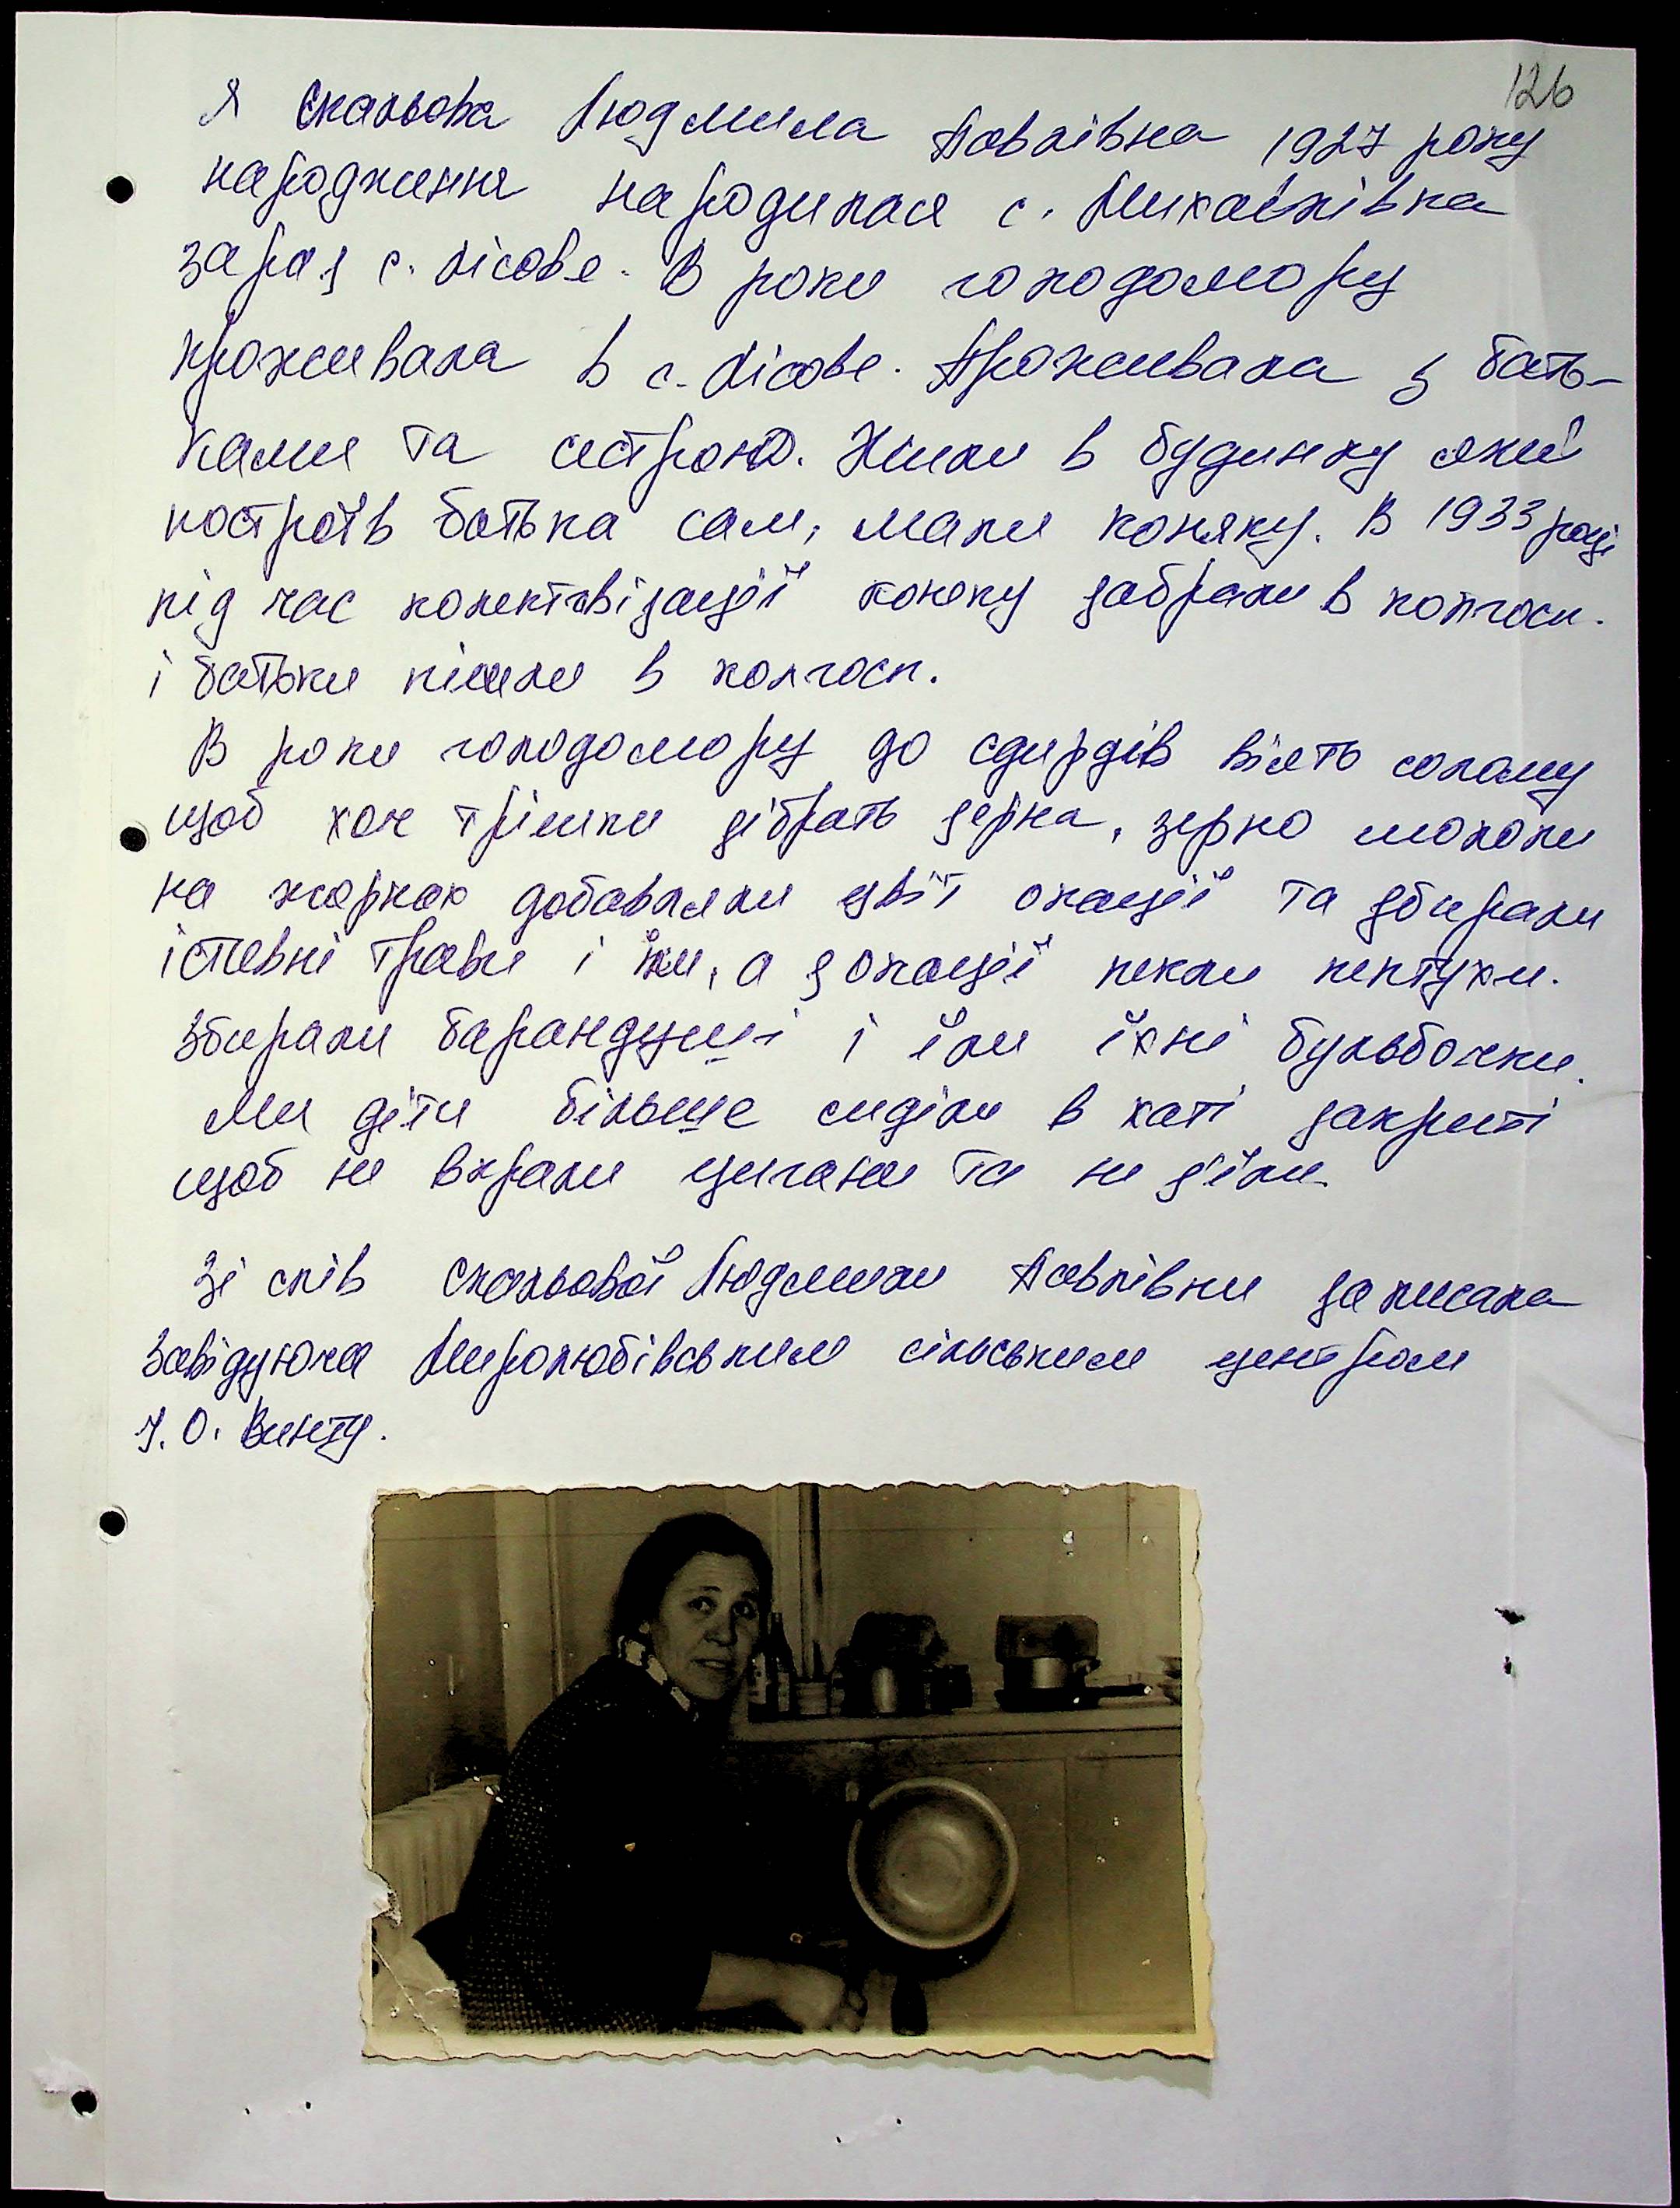 126
Я Скальова Людмила Павлівна 1927 року
народження народилася с. Михайлівка
зараз с. Лісове. В роки голодомору
проживала в с. Лісове. Проживала з бать-
ками та сестрою. Жили в будинку який
построїв батька сам, мали коняку. В 1933 році
під час колективізації коняку забрали в колгосп.
і батьки пішли в колгосп.
В роки голодомору до скирдів віять солому
щоб хоч трішки зібрать зерна, зерно мололи
на жорнах добавляли цвіт окації та збирали
їстевні трави і їли, а з окації пекли пептухи.
Збирали барандуші і їли їхні бульбочки.
Ми діти більше сиділи в хаті закриті
щоб не вкрали цигани та не з'їли.
Зі слів Скальової Людмили Павлівни записала
Завідуюча Миролюбівським сільським центром
О. Винту.